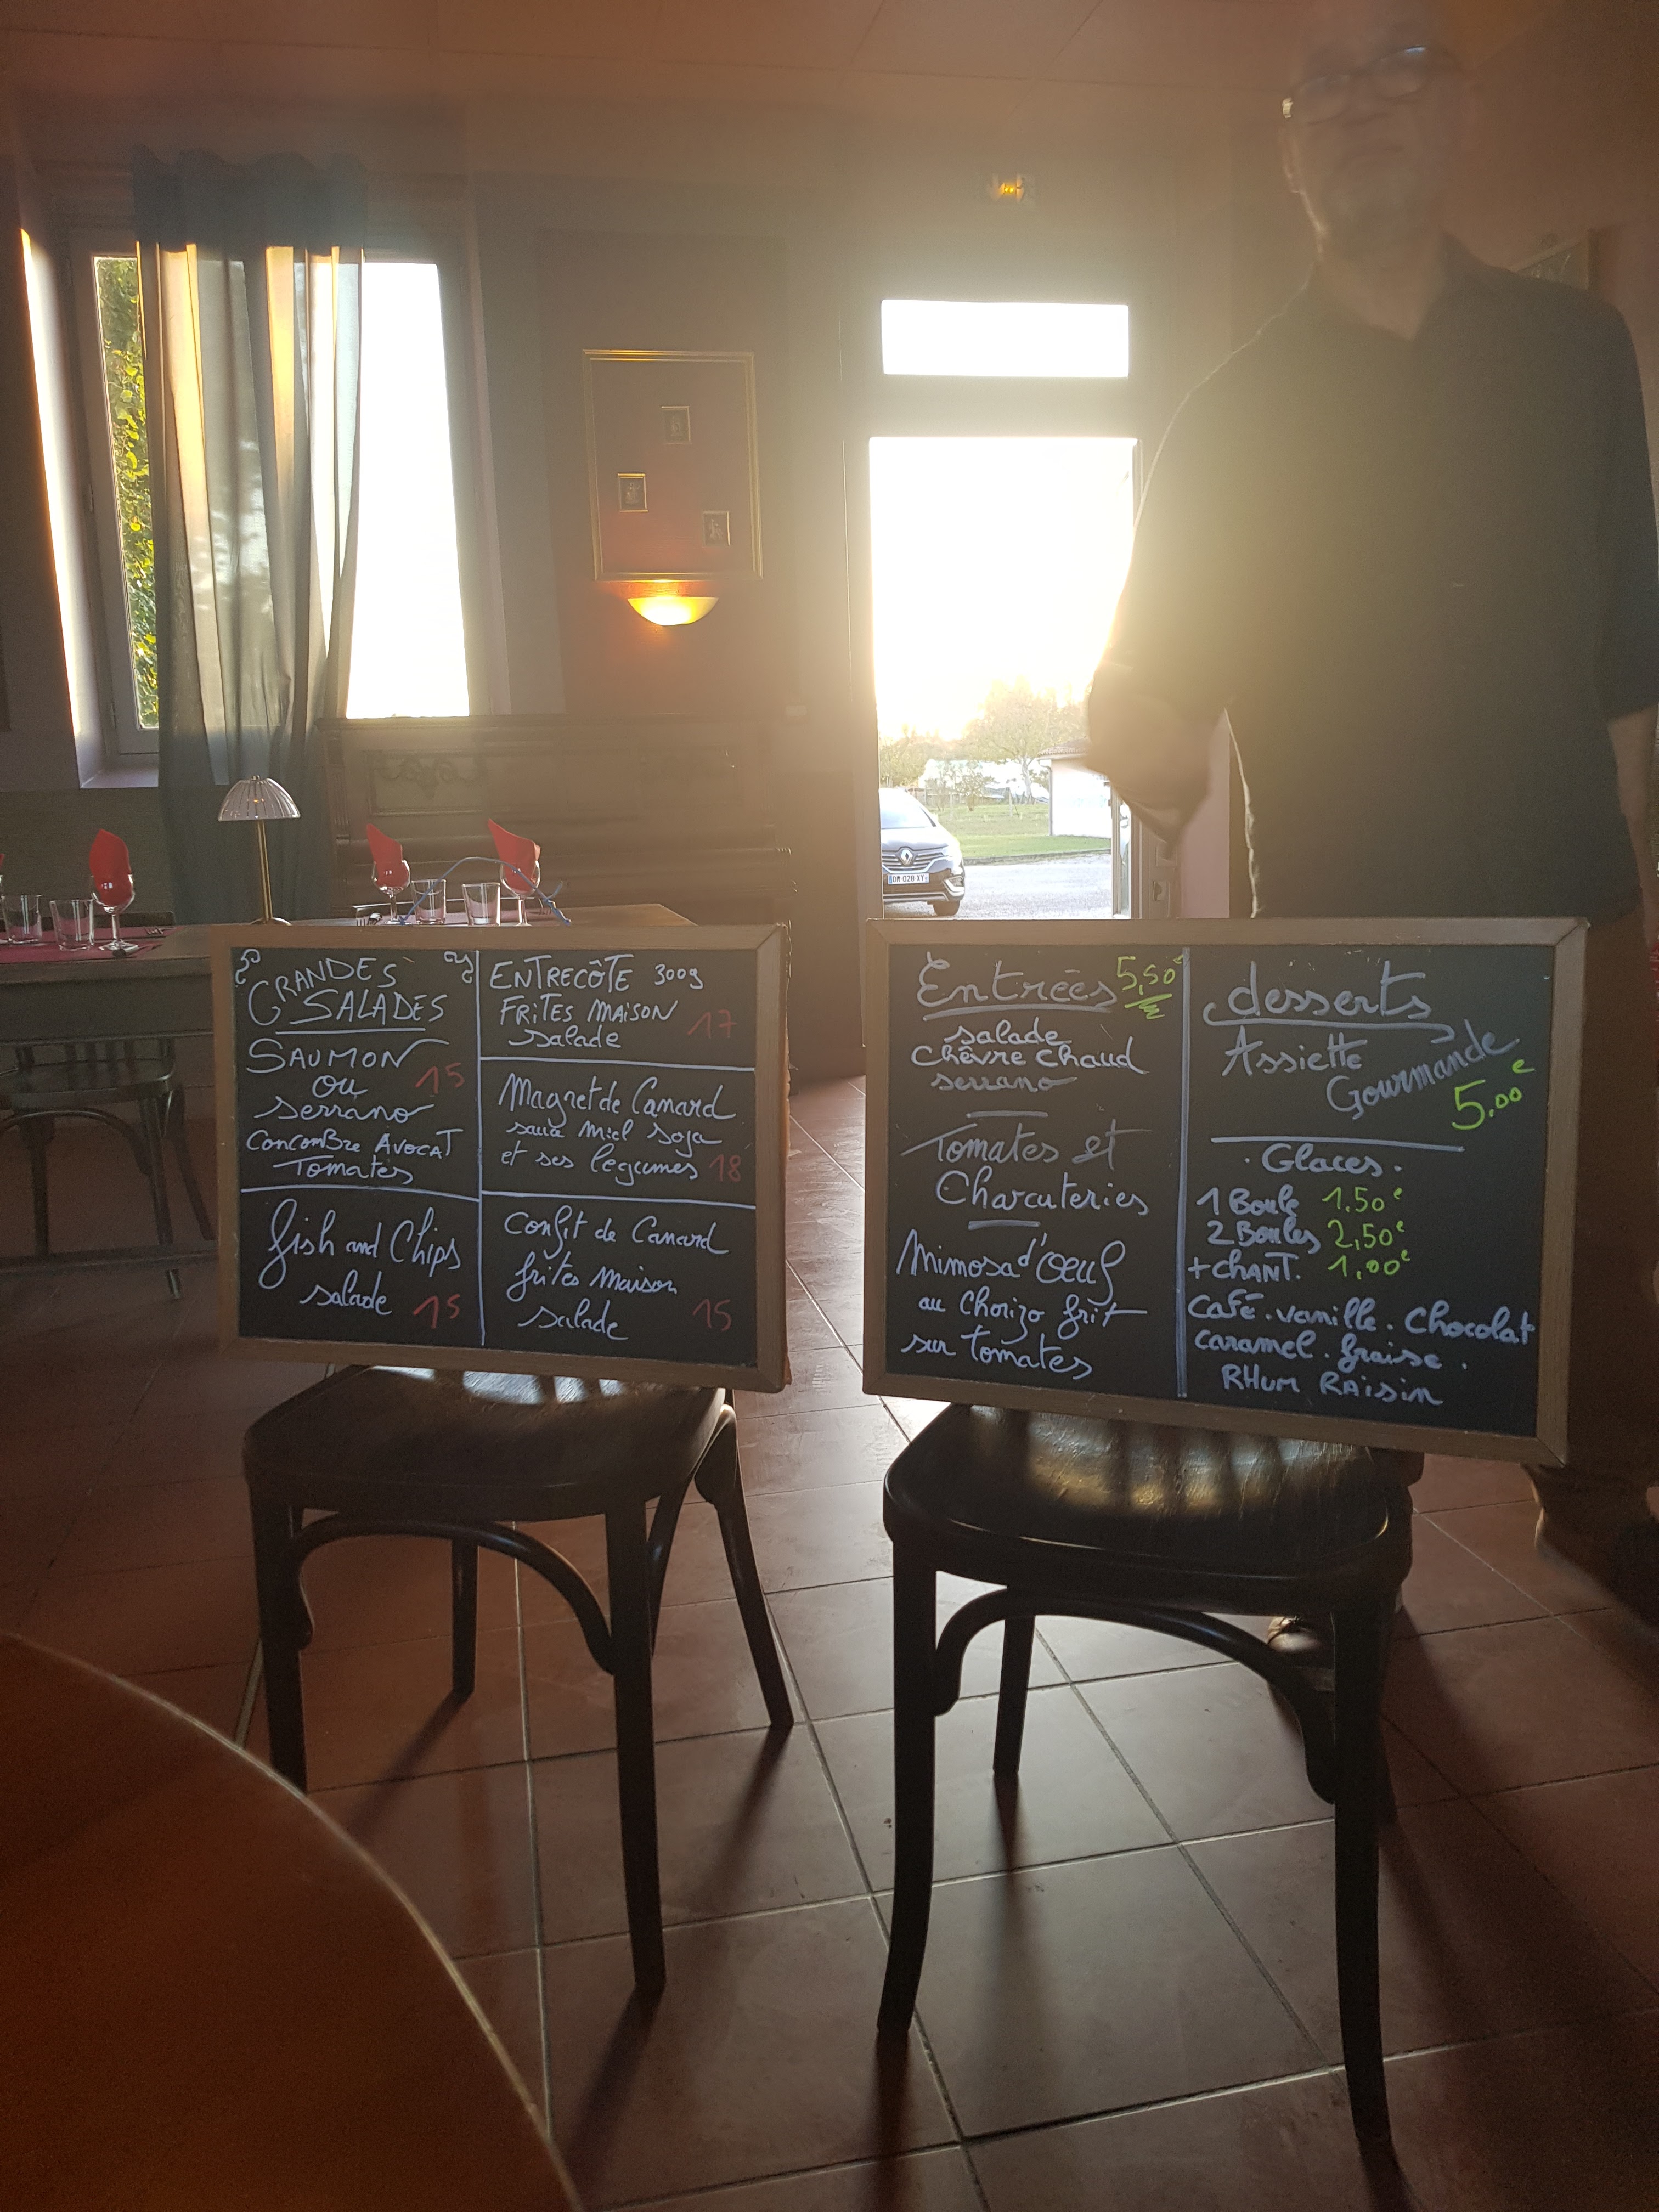 GRANDES
SALADES
SAUMON
ou
serrano
15
ConcomBre AvocaT
Tomates
fish and Chips
salade 15
ENTRECÔTE 300g
FRiTES MAiSON
salade 17
Magret de Canard
sauce Miel soja
et ses légumes 18
Confit de Canard
frites Maison
salade 15
Entrées 5,50€
salade
Chèvre Chaud
serrano
Tomates et
Charcuteries
Mimosa d'Oeuf
au Chorizo frit
sur tomates
desserts
Assiette
Gourmande
5.00€
. Glaces .
1 Boule 1.50€
2 Boules 2,50€
+ CHANT. 1,00€
Café . vanille . Chocolat
caramel . fraise .
RHum RAisin
DM 028 XY